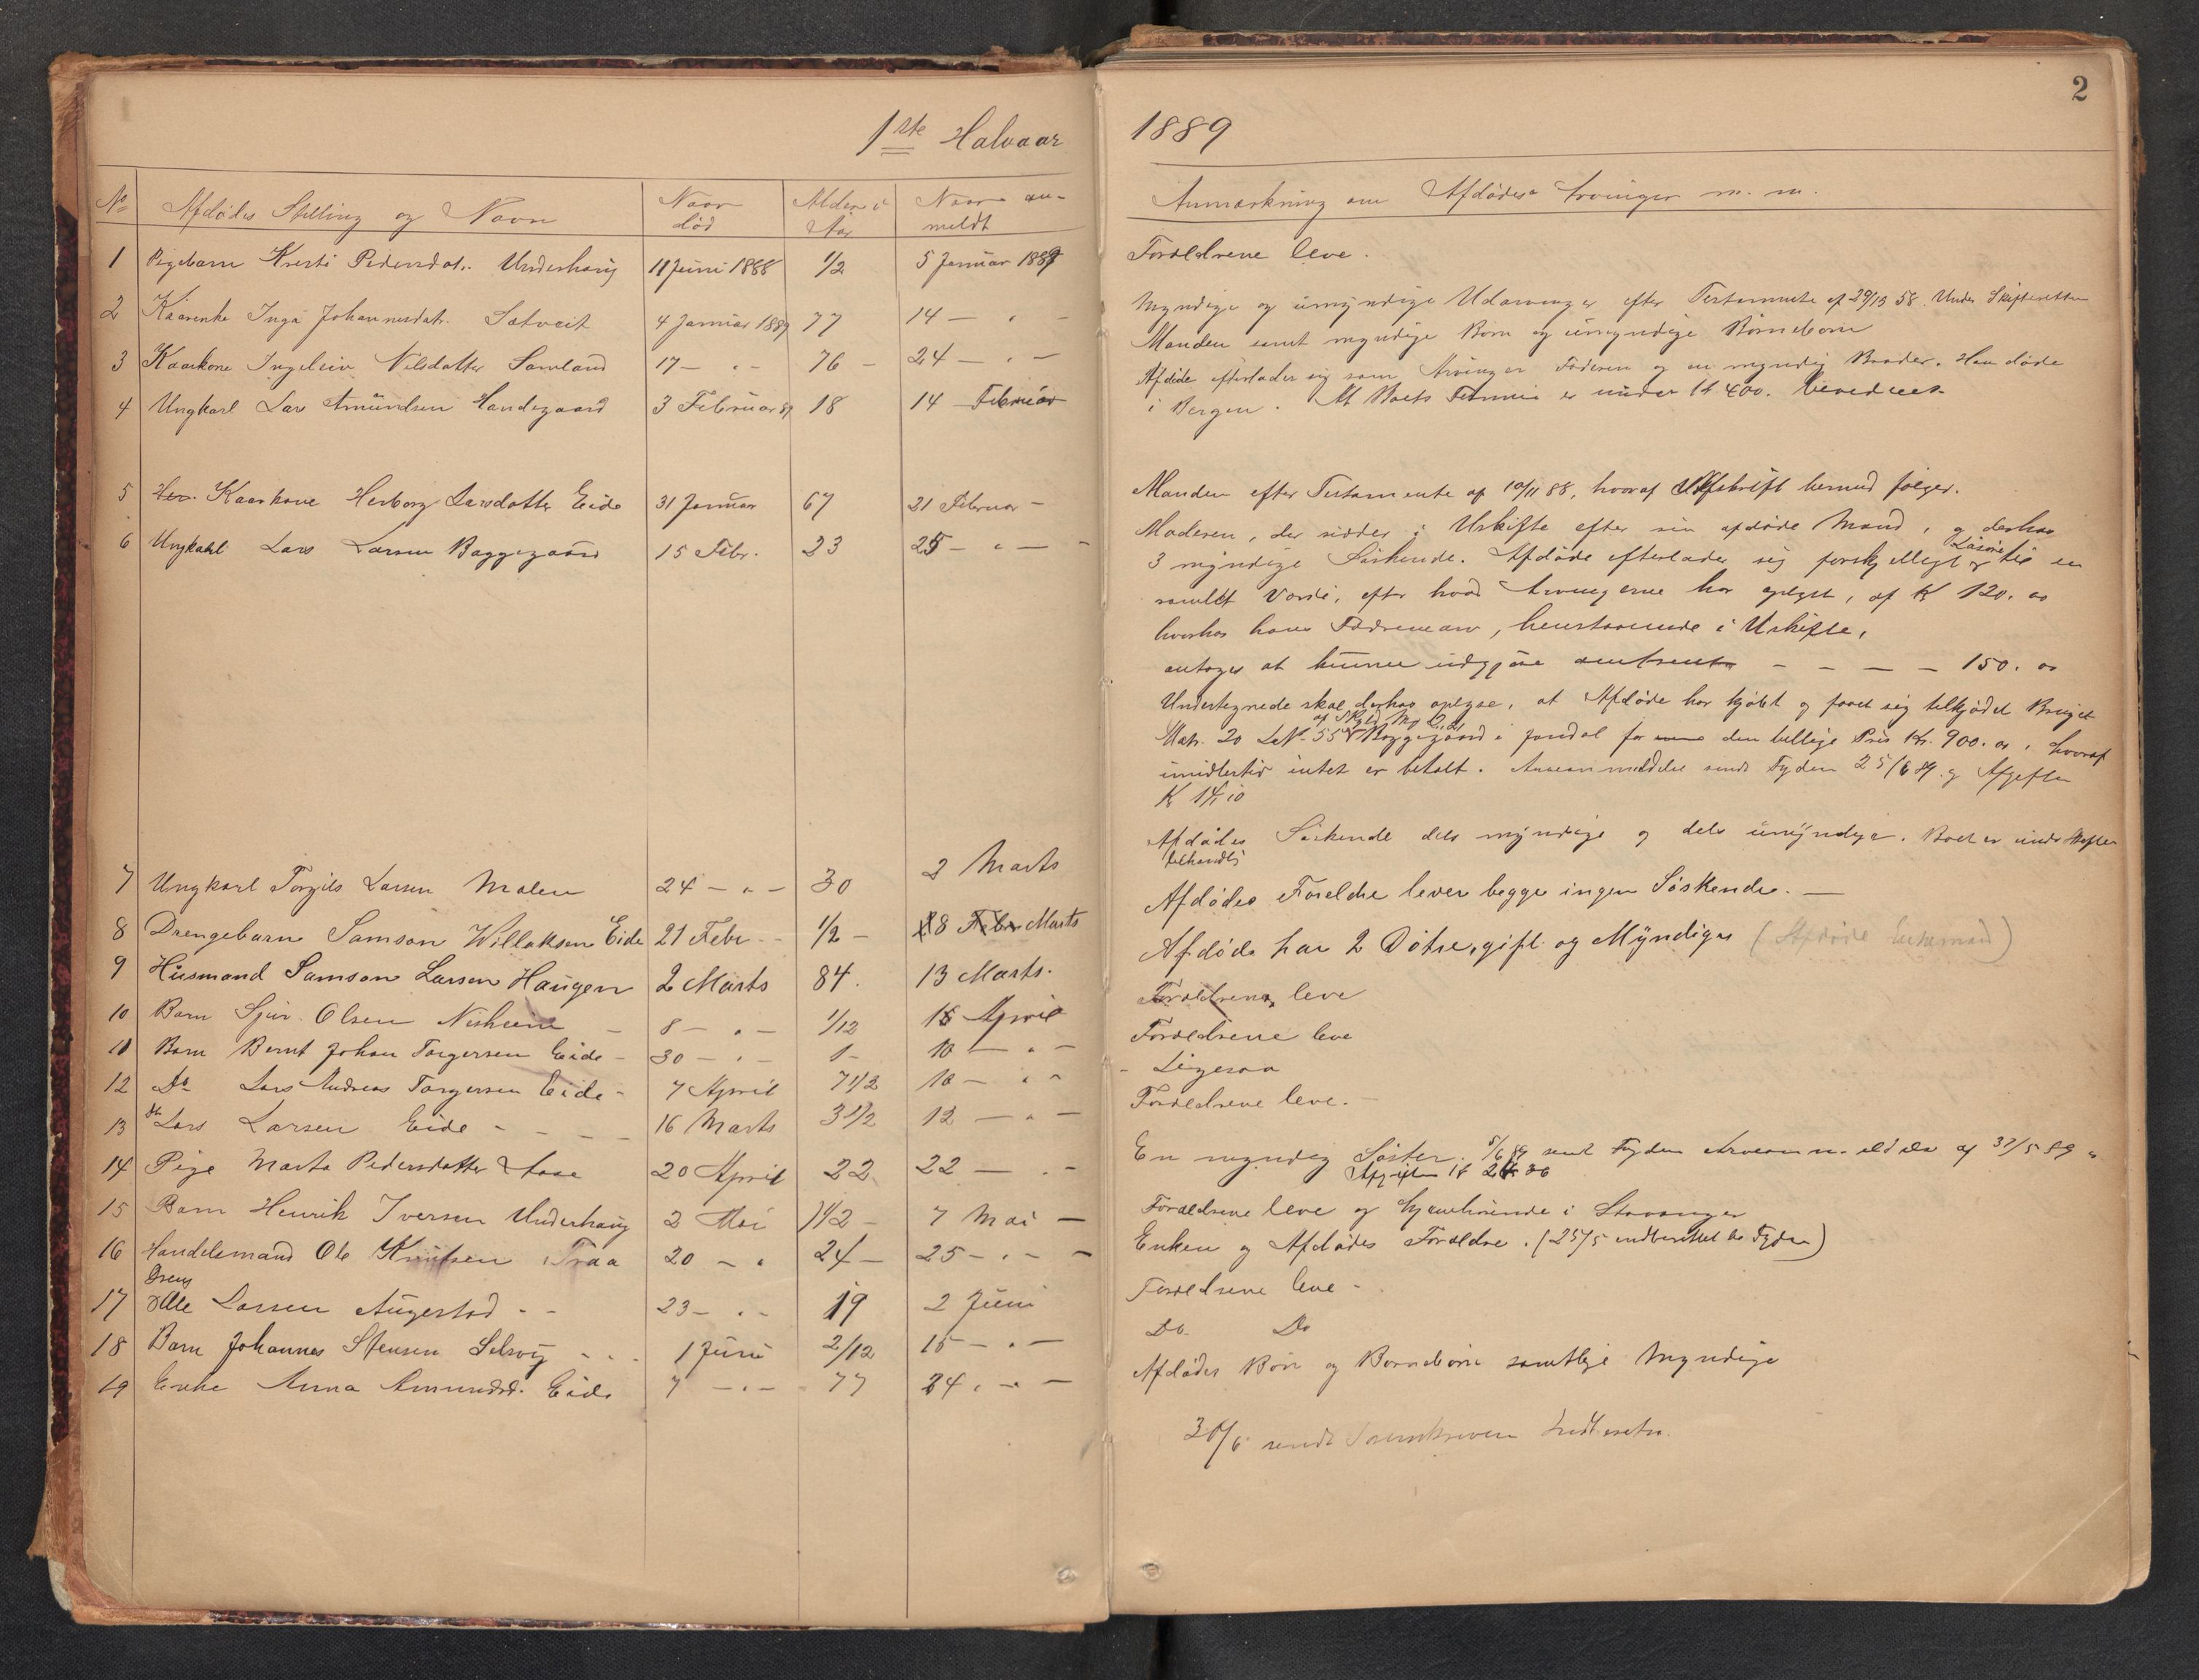 2
1ste Halvaar
1889
No Afdødes Stilling og Navn Naar død Alder i Aar Naar anmeldt
Anmærkning om Afdødes Arvinger m. m.
1 Pigebarn Kristi Pedersdat. Underhaug 11 Juni 1888 1/2 5 Januar 1889
2 Kaarenke Inga Johannesdatr. Sætveit 4 Januar 1889 77 14 — " —
3 Kaarkone Ingeleiv Nilsdatter Samland 17 — " — 76 — 24 — " —
4 Ungkarl Lars Amundsen Handegaard 3 Februar 89 18 14 Februar
5 Kaarkone Herborg Larsdatter Eide 31 Januar 67 21 Februar —
6 Ungkarl Lars Larsen Baggegaard 15 Febr. 23 25 — " — -
7 Ungkarl Torgils Larsen Malen 24 — " — 30 2 Marts
8 Drengebarn Samson Willaksen Eide 21 Febr - - 1/2 — 8 Febr Marts
9 Husmand Samson Larsen Haugen 2 Marts 84. 13 Marts.
10 Barn Sjur Olsen — 8 — " — 1/12 15 April
11 Barn Bernt Johan Torgersen Eide — 30 — " — 1 - 10 — " —
12 Do Lars Andreas Torgersen Eide - 7 April 7 1/2 10 — " "
13 do Lars Larsen Eide - - - — 16 Marts 3 1/2 12 — " —
14 Pige Marta Pedersdatter Aase 20 April 22 22 — " -
15 Barn Henrik Iversen Underhaug 2 Mai 1/12 - 7 Mai —
16 Handelsmand Ole Knutsen Traa 20 — " 24 — 25 — " — -
Dreng
17 Olle Larsen Augestad - - 23 — " - 19 2 Juni
18 Barn Johannes Stensen Selsvig - - - 1 Juni 2/12 15 — " —
19 Enke Anna Amundsd. Eide 7 — " — 77 24 " — —
Forældrene leve.
Myndige og umyndige Udarvinger efter Testamente af 29/13 58. Under Skifteretten
Manden samt myndige Børn og umyndige Børnebørn
Afdøde efterlader sig som Arvinger Faderen og en myndig Broder. Han døde
i Bergen. At Boets Formue er under Kr 400. bevidnes
Manden efter Testamente af 10/11 88, hvoraf Afskrift hermed følger.
Moderen, der sidder i Uskifte efter sin afdøde Mand, og derhos
3 myndige Søskende. Afdøde efterlader sig forskjelligt Løsøre til en
samlet Værdi, efter hvad Arvingerne har oplyst, af Kr 120. 00
hvorhos hans Fædrenearv, henstaaende i Uskifte,
antages at kunne udgjøre omtrent — — — — 150. 00
Undertegnede skal derhos oplyse, at Afdøde har kjøbt og faaet sig tilskjødet Bruget
af Skyld
Matr. 20 LNo 55 Baggegaard i Jondal for den billige Pris Kr. 900. 00, hvoraf
imidlertid intet er betalt. Arveanmeldelse sendt Fogden 25/6 89. og Afgiften
Kr 14,10
Afdødes Søskende dels myndige og dels umyndige. Boet er under Skifte
behandlg
Afdødes Forældre lever begge ingen Søskende. —
Afdøde har 2 Døtre, gift og Myndiges (Afdøde Enkemand)
Forældrene leve
Forældrene leve
- Ligesaa
Forældrene leve. —
En myndig Søster. 5/6 89 sendt Fogden Arveanmeldelse af 31/5 89
Afgiften Kr
Forældrene leve og hjemhørende i Stavanger
Enken og Afdødes Forældre. (25/5 indberettet til Fogden)
Forældrene leve -
Do. Do
Afdødes Børn og Børnebørn samtlige Myndige
30/6 sendt Sorenskriveren Indberetn.